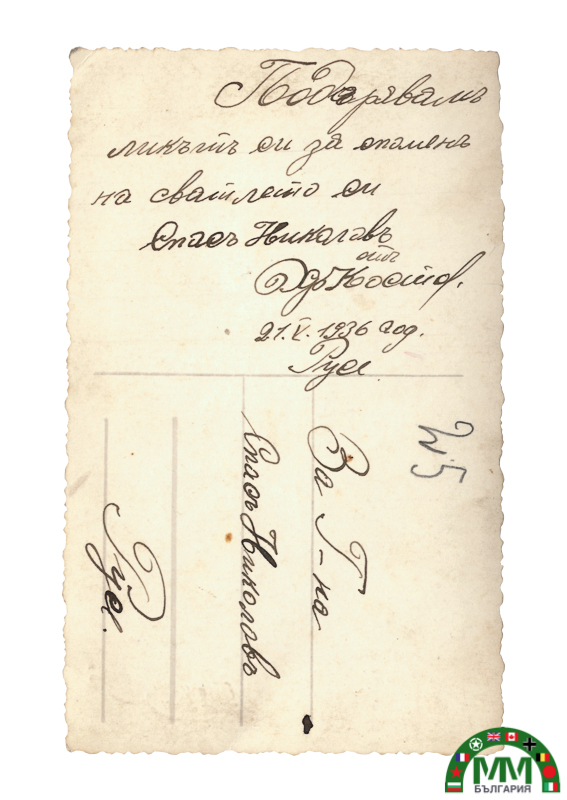 Подарявамъ
ликътъ си за споменъ
на сватлето си
Спасъ Николовъ
отъ
Костов.
21.V.1936 год.
Русе
За Г-на
Спасъ Николовъ
Русе.
ММ
БЪЛГАРИЯ